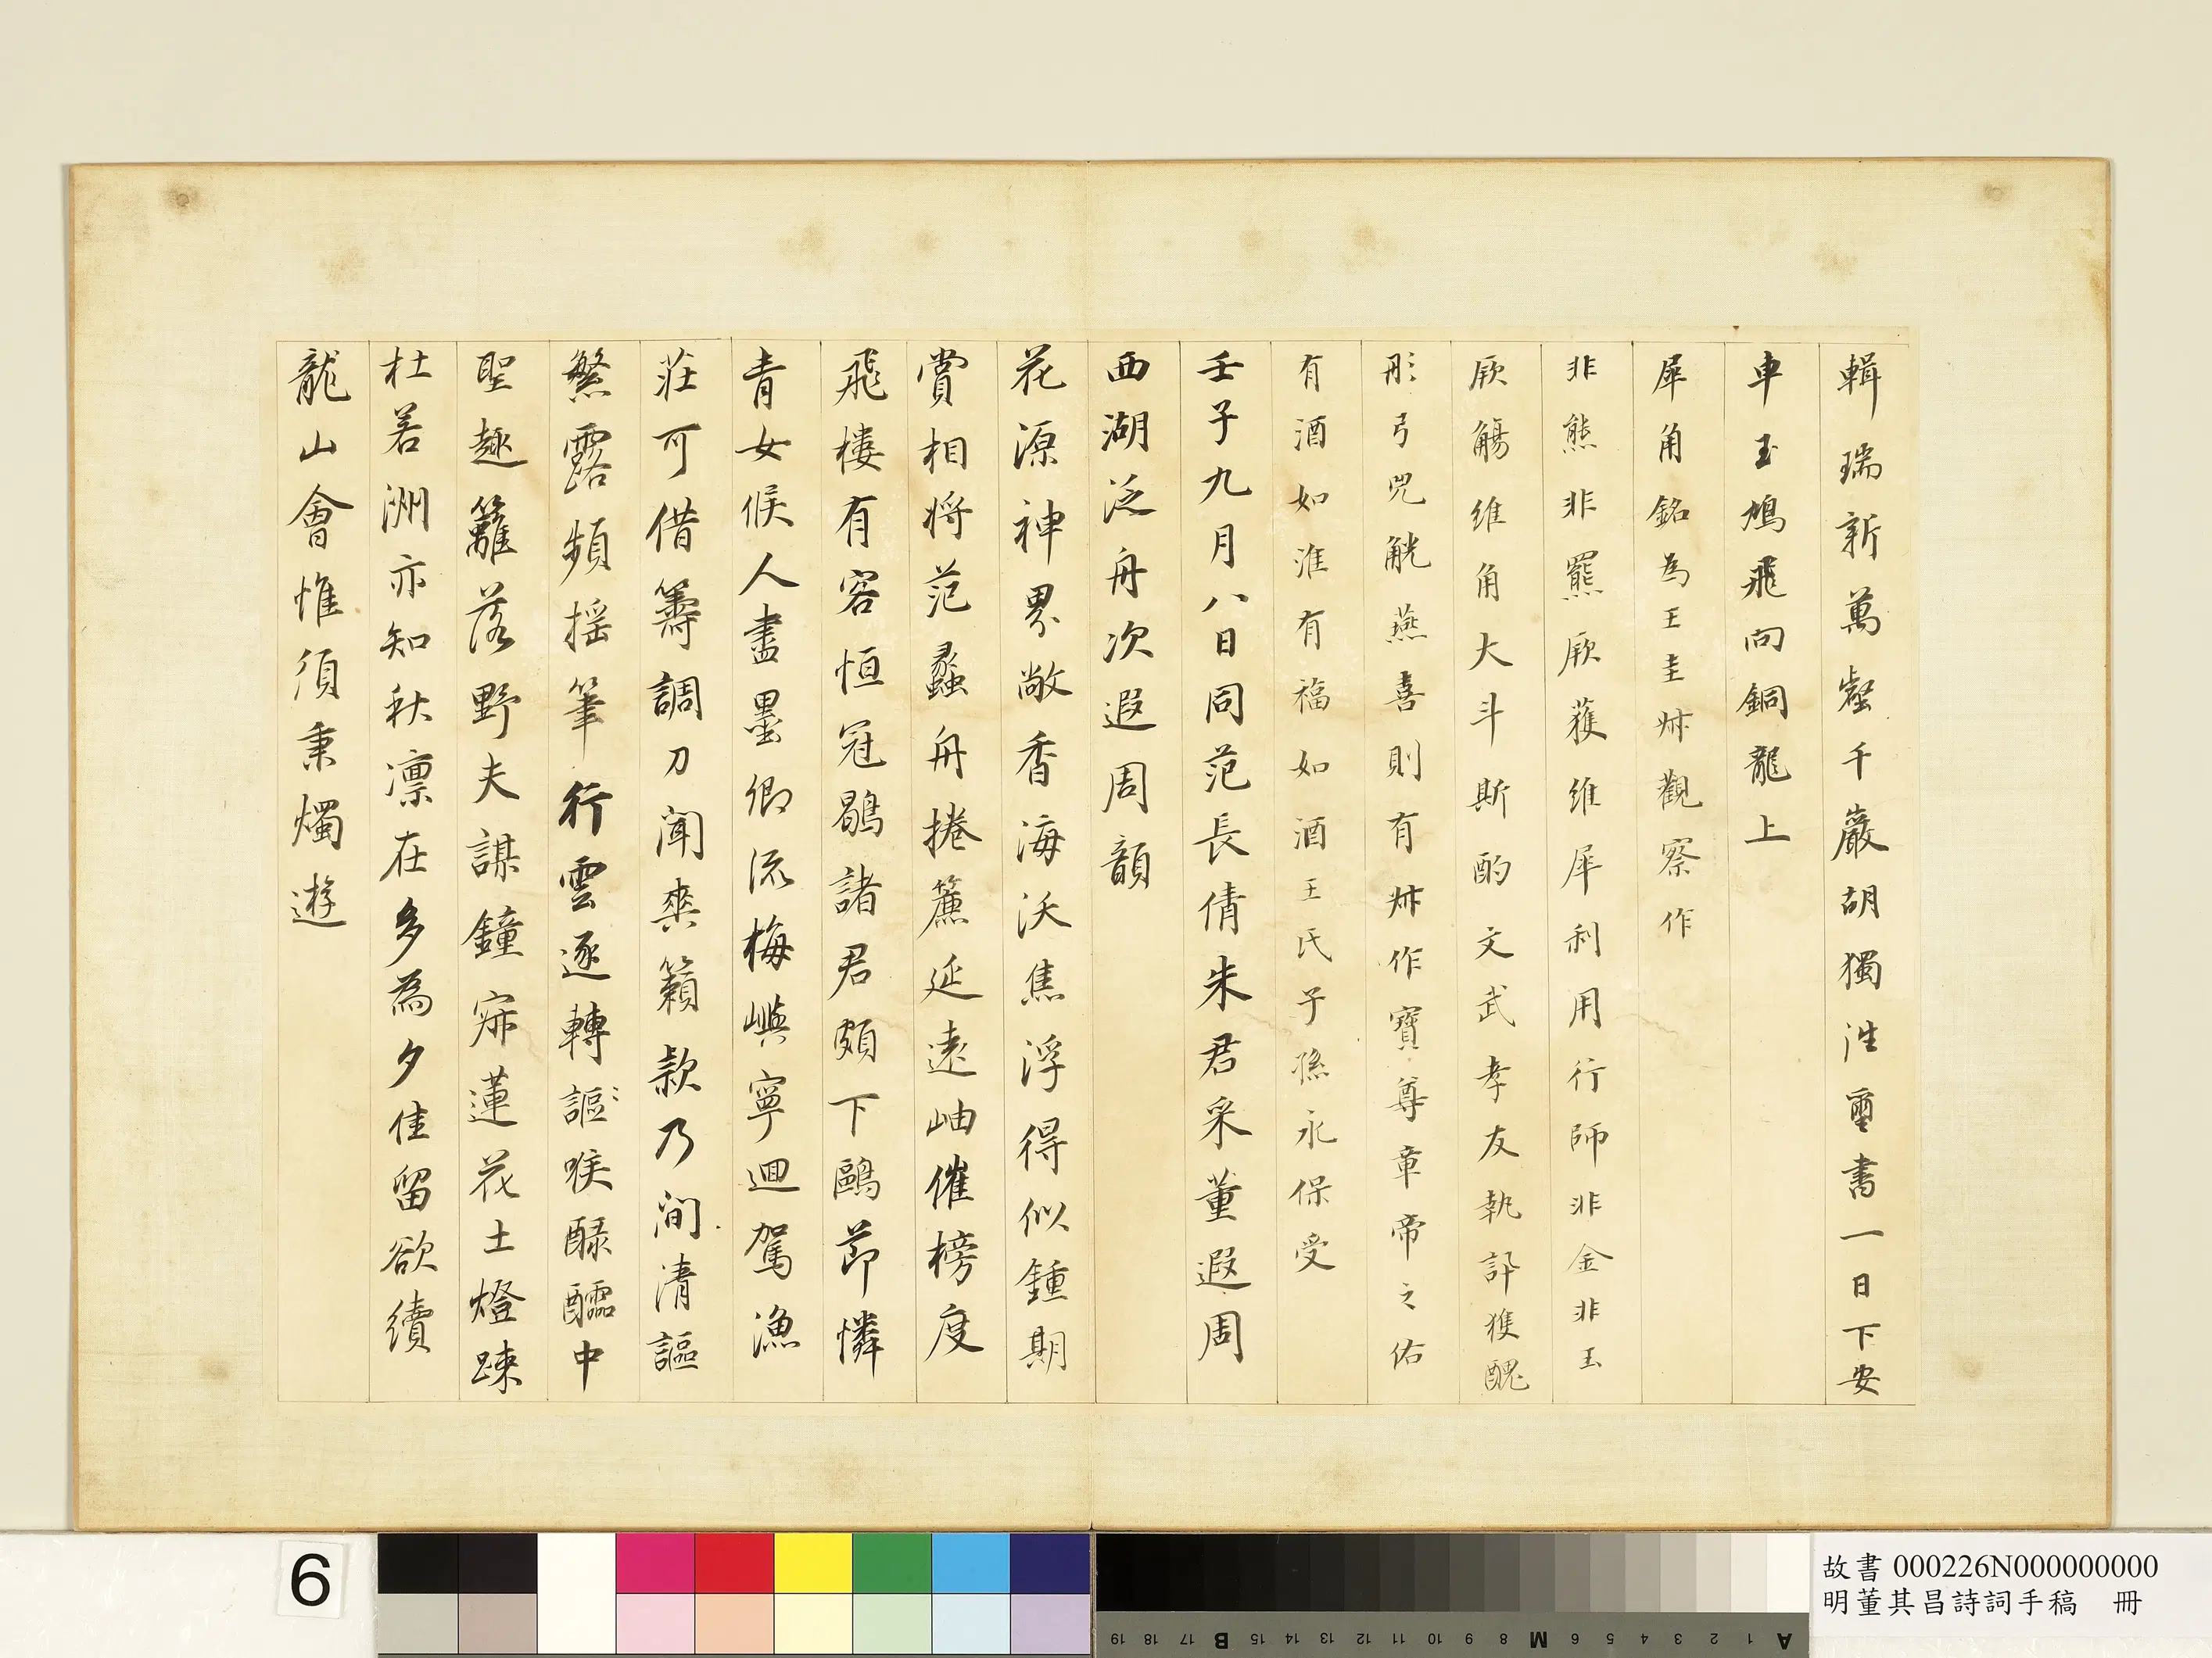 輯瑞新萬壑千巖胡獨泩璽書一日下安
車玉鳩飛向銅龍上
犀角銘為王圭叔觀察作
非熊非羆厥獲維犀利用行師非金非玉
厥觴維角大斗斯酌文武孝友執訊獲醜
彤弓兕觥燕喜則有叔作寶尊章帝之佑
有酒如淮有福如酒王氏子孫永保受
壬子九月八日同范長倩朱君采董遐周
西湖泛舟次遐周韻
花源神界敞香海沃焦浮得似鍾期
賞相將范蠡舟捲簾延遠岫催榜度
飛樓有客恒冠鶡諸君頗下鷗節憐
青女候人盡墨卿流梅嶼寧迴駕漁
莊可借籌調刀聞爽籟款乃間清謳
繁露頻搖筆行雲逐轉謳喉醁醽中
聖趣籬落野夫謀鐘寂蓮花土燈疎
杜若洲亦知秋凛在多為夕佳留欲續
龍山會惟須秉燭遊
6
故書 000226N000000000
明董其昌詩詞手稿 冊
A 1 2 3 4 5 6 M 8 9 10 11 12 13 14 15 B 17 18 19